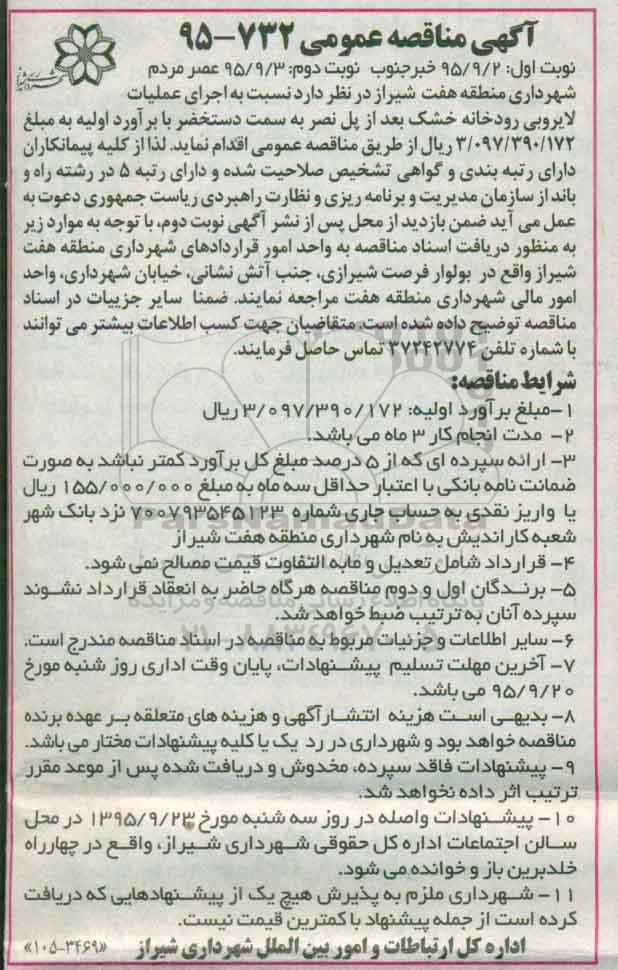 آگهی مناقصه عمومی ۷۳۲-۹۵
نوبت اول: ۹۵/۹/۲ خبرجنوب نوبت دوم: ۹۵/۹/۳ عصر مردم
شهرداری منطقه هفت شیراز در نظر دارد نسبت به اجرای عملیات
لایروبی رودخانه خشک بعد از پل نصر به سمت دستخضر با برآورد اولیه به مبلغ
۳/۰۹۷/۳۹۰/۱۷۲ ریال از طریق مناقصه عمومی اقدام نماید. لذا از کلیه پیمانکاران
دارای رتبه بندی و گواهی تشخیص صلاحیت شده و دارای رتبه ۵ در رشته راه و
باند از سازمان مدیریت و برنامه ریزی و نظارت راهبردی ریاست جمهوری دعوت به
عمل می آید ضمن بازدید از محل پس از نشر آگهی نوبت دوم، با توجه به موارد زیر
به منظور دریافت اسناد مناقصه به واحد امور قراردادهای شهرداری منطقه هفت
شیراز واقع در بولوار فرصت شیرازی، جنب آتش نشانی، خیابان شهرداری، واحد
امور مالی شهرداری منطقه هفت مراجعه نمایند. ضمنا سایر جزییات در اسناد
مناقصه توضیح داده شده است. متقاضیان جهت کسب اطلاعات بیشتر می توانند
با شماره تلفن ۳۷۲۴۲۷۷۴ تماس حاصل فرمایند.
شرایط مناقصه:
۱-مبلغ برآورد اولیه: ۳/۰۹۷/۳۹۰/۱۷۲ ریال
۲- مدت انجام کار ۳ ماه می باشد.
۳- ارائه سپرده ای که از ۵ درصد مبلغ کل برآورد کمتر نباشد به صورت
ضمانت نامه بانکی با اعتبار حداقل سه ماه به مبلغ ۱۵۵/۰۰۰/۰۰۰ ریال
یا واریز نقدی به حساب جاری شماره ۷۰۰۷۹۳۵۴۵۱۲۳ نزد بانک شهر
شعبه کاراندیش به نام شهرداری منطقه هفت شیراز
۴- قرارداد شامل تعدیل و مابه التفاوت قیمت مصالح نمی شود.
۵- برندگان اول و دوم مناقصه هرگاه حاضر به انعقاد قرارداد نشوند
سپرده آنان به ترتیب ضبط خواهد شد.
۶- سایر اطلاعات و جزئیات مربوط به مناقصه در اسناد مناقصه مندرج است.
۷- آخرین مهلت تسلیم پیشنهادات، پایان وقت اداری روز شنبه مورخ
۹۵/۹/۲۰ می باشد.
۸- بدیهی است هزینه انتشار آگهی و هزینه های متعلقه بر عهده برنده
مناقصه خواهد بود و شهرداری در رد یک یا کلیه پیشنهادات مختار می باشد.
۹- پیشنهادات فاقد سپرده، مخدوش و دریافت شده پس از موعد مقرر
ترتیب اثر داده نخواهد شد.
۱۰- پیشنهادات واصله در روز سه شنبه مورخ ۱۳۹۵/۹/۲۳ در محل
سالن اجتماعات اداره کل حقوقی شهرداری شیراز، واقع در چهارراه
خلدبرین باز و خوانده می شود.
۱۱- شهرداری ملزم به پذیرش هیچ یک از پیشنهادهایی که دریافت
کرده است از جمله پیشنهاد با کمترین قیمت نیست.
اداره کل ارتباطات و امور بین الملل شهرداری شیراز «۱۰۵-۳۴۶۹»
ParsNamadData